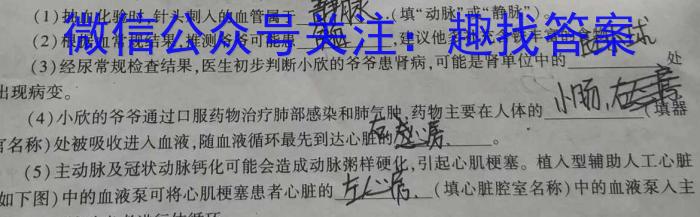 (1)抽血化验时,针头刺入的血管属于 静脉 (填“动脉”或“静脉”)。
微信公众号关注：趣找答案
(2)根据血常规结果,推测爷爷可能患 建议他
(3)经尿常规检查结果,医生初步判断小欣的爷爷患肾病,可能是肾单位中的 处
出现病变。
(4)小欣的爷爷通过口服药物治疗肺部感染和肺气肿,药物主要在人体的 小肠 (填器
官名称)处被吸收进入血液,随血液循环最先到达心脏的 右心房 。
(5)主动脉及冠状动脉钙化可能会造成动脉粥样硬化,引起心肌梗塞。植入型辅助人工心脏
如下图)中的血液泵可将心肌梗塞患者心脏的 左心房 (填心脏腔室名称)中的血液泵入主